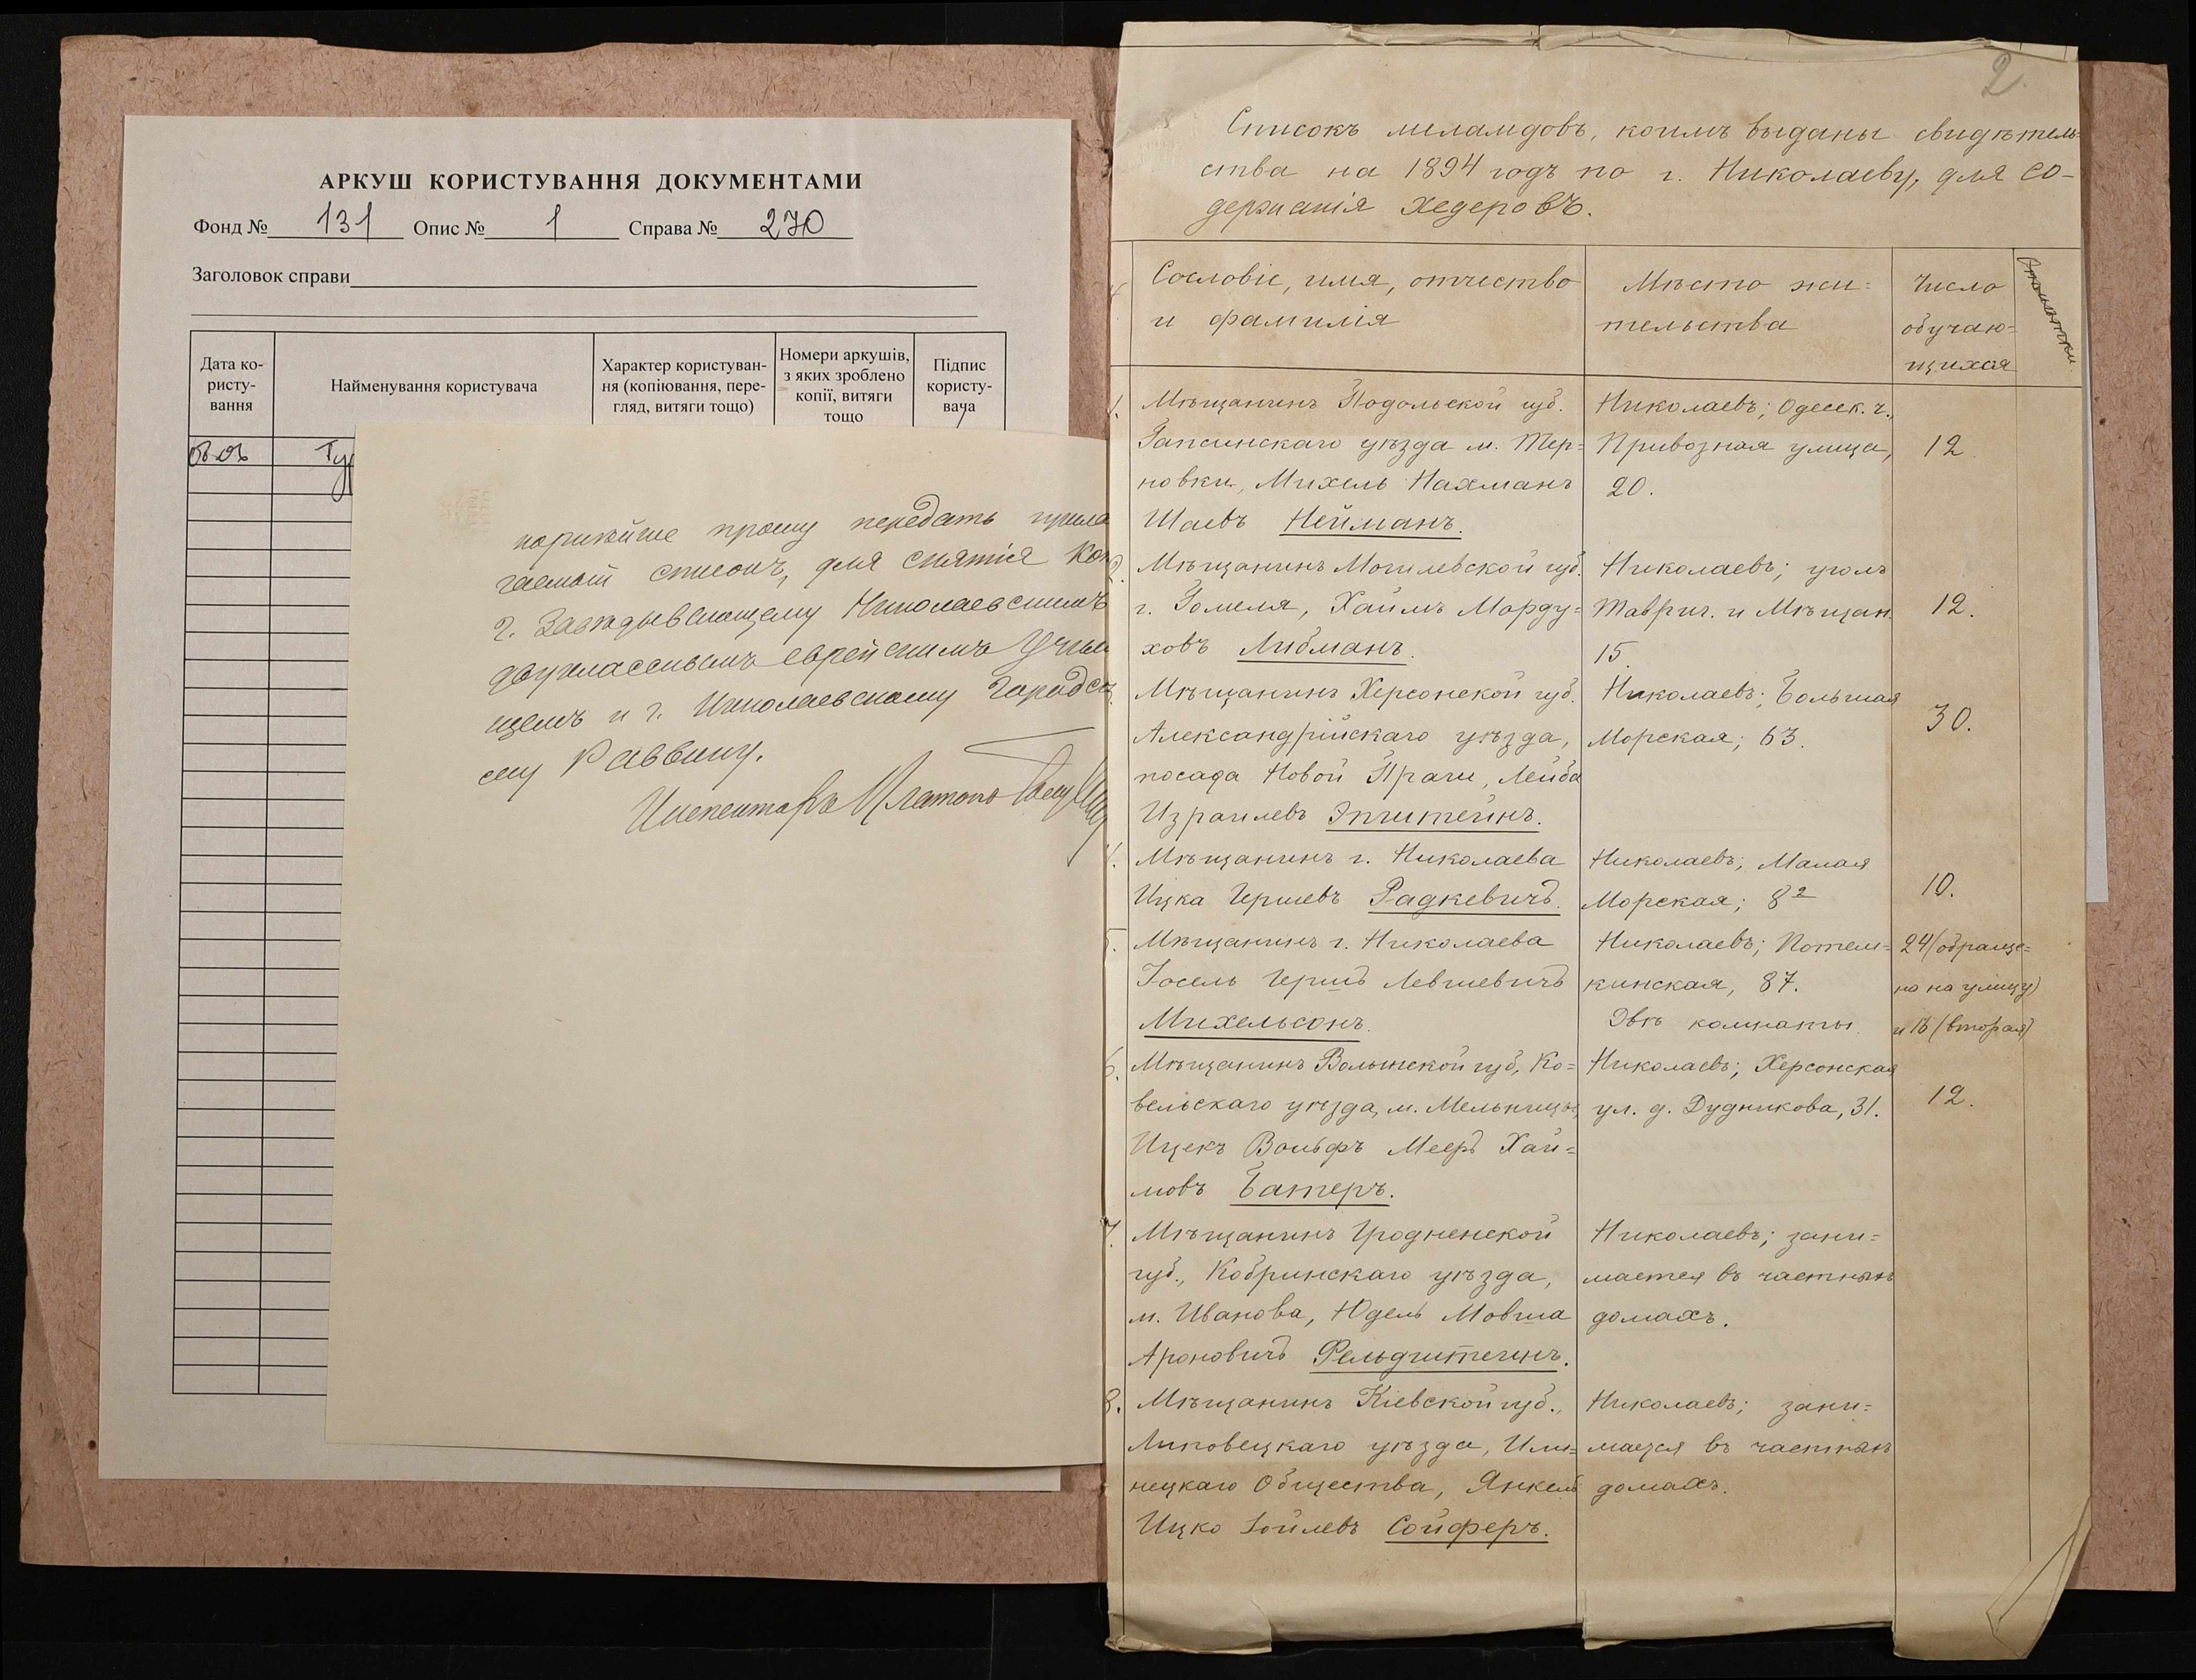 АРКУШ КОРИСТУВАННЯ ДОКУМЕНТАМИ
Фонд № 131 Опис № 1 Справа № 270
Заголовок справи
Дата ко-
ристу-
вання
Найменування користувача
Характер користуван-
ня (копіювання, пере-
гляд, витяги тощо)
Номери аркушів,
з яких зроблено
копії, витяги
тощо
Підпис
користу-
вача
прошу передать
гаемый списокъ, для снятія
г. Завѣдывающему Николаевскимъ
двухкласснымъ еврейскимъ
щемъ и г. Николаевскому Городск
ому Раввину.
Инспекторъ
2
Списокъ меламдовъ, коимъ выданы свидѣтель-
ства на 1894 годъ по г. Николаеву, для со-
держанія хедеровъ.
Сословіе, имя, отчество
и фамилія
Мѣсто жи=
тельства
Число
обучаю=
щихся
1. Мѣщанинъ Подольской губ.
Гайсинскаго уѣзда м. Тер=
новки, Михель Нахманъ
Шаевъ Нейманъ.
Николаевъ; Одесск. ч.,
Привозная улица,
20.
12
2. Мѣщанинъ Могилевской губ.
г. Гомеля, Хаимъ Морду=
ховъ Либманъ.
Николаевъ; уголъ
Таврич. и Мѣщан.
15.
12.
Мѣщанинъ Херсонской губ.
Александрійскаго уѣзда,
посада Новой Праги, Лейба
Израилевъ Эпштейнъ.
Николаевъ; Большая
Морская; 63.
30.
4. Мѣщанинъ г. Николаева
Ицка Гершевъ Радкевичъ.
Николаевъ; Малая
Морская; 82
10.
5. Мѣщанинъ г. Николаева
Іосель Гершъ Левшевичъ
Михельсонъ.
Николаевъ; Потем=
кинская, 87.
Двѣ комнаты.
24 (обраще=
на на улицу)
и 16 (вторая)
6. Мѣщанинъ Волынской губ., Ко=
вельскаго уѣзда, м. Мельницы,
Ицекъ Вольфъ Мееръ Хаи=
мовъ Батеръ.
Николаевъ; Херсонская
ул. д. Дудникова, 31.
12.
7. Мѣщанинъ Гродненской
губ., Кобринскаго уѣзда,
м. Иванова, Юдель Мовша
Ароновичъ Фельдштейнъ.
Николаевъ; зани=
мается въ частныхъ
домахъ.
8. Мѣщанинъ Кіевской губ.,
Липовецкаго уѣзда, Или=
нецкаго Общества, Янкель
Ицко Зойлевъ Сойферъ.
Николаевъ; зани=
мается въ частныхъ
домахъ.